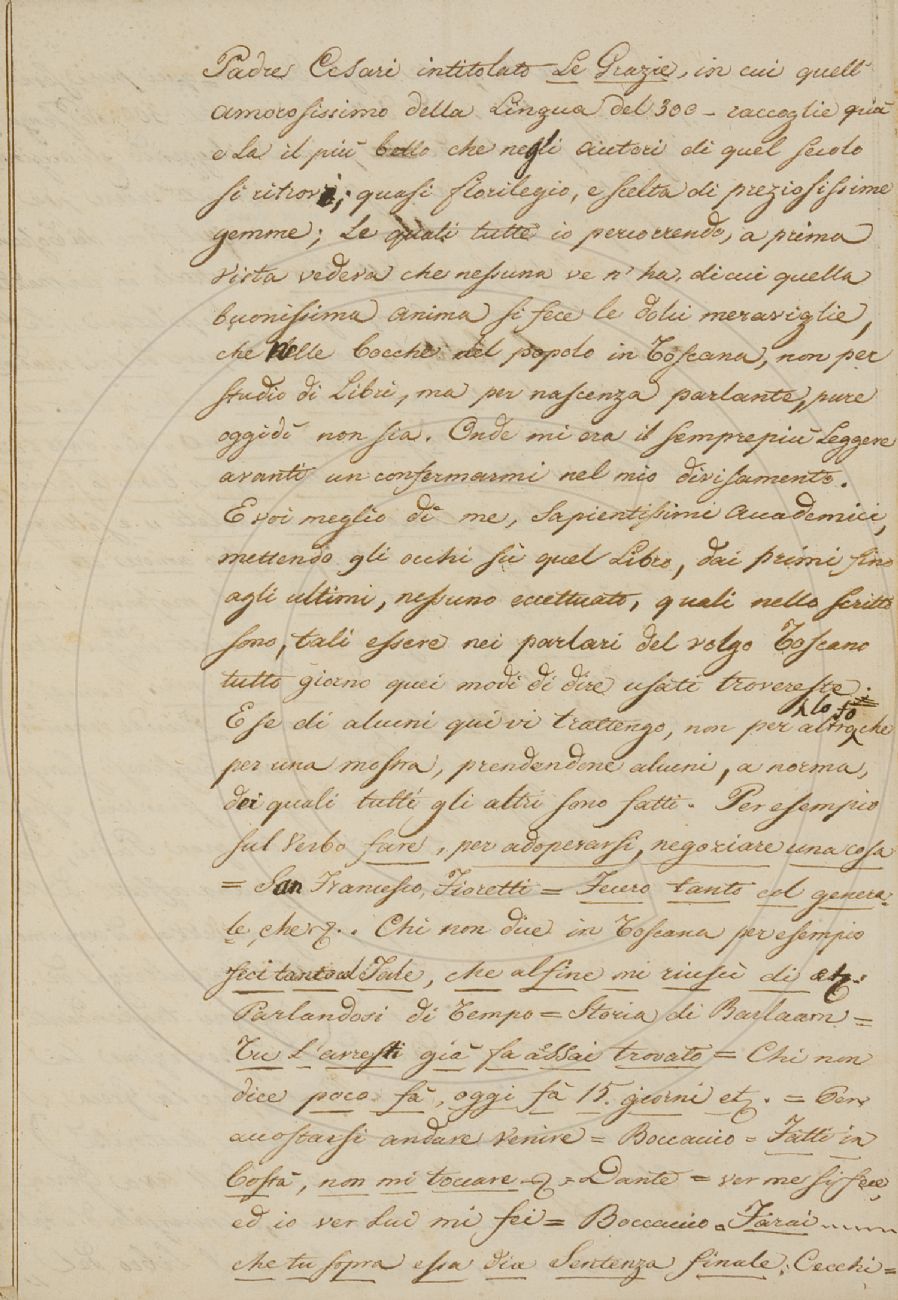 Padre Cesari intitolato Le Grazie, in cui quell'
amorosissimo della Lingua del 300 - raccoglie quà
e La il più bello che negli autori di quel secolo
si ritrovi; quasi florilegio, e scelta di preziosissime
gemme; Le quali tutte io percorrendo, a prima
vista vedeva che nessuna ve n'ha, di cui quella
buonissima anima si fece le dolci meraviglie,
che nelle bocche del popolo in Toscana, non per
studio di Libri, ma per nascenza parlante, pure
oggidì non sia. Onde mi era il semprepiù Leggere
avanti un confermarmi nel mio divisamento.
E voi meglio di me, Sapientissimi Accademici,
mettendo gli occhi sù quel Libro, dai primi fino
agli ultimi, nessuno eccettuato, quali nello scritto
sono, tali essere nei parlari del volgo Toscano
tutto giorno quei modi di dire usati trovereste.
E se di alcuni quì vi trattengo, non per altro lo fo che
per una mostra, prendendone alcuni, a norma,
dei quali tutti gli altri sono fatti. Per esempio
sul Verbo fare, per adoperarsi, negoziare una cosa
= San Francesco, Fioretti = Fecero tanto col genera-
le, che &. Chi non dice in Toscana per esempio
feci tanto col Tale, che alfine mi riuscì di etc:
Parlandosi di Tempo = Storia di Barlaam =
Tu L'avresti già fa assai trovato = Chi non
dice poco fà, oggi fà 15. giorni etc. = Per
accostarsi andare venire = Boccaccio = Fatti in
Costà, non mi toccare & = Dante = ver me si fece,
ed io ver Lui mi fei = Boccaccio. Farai ......
che tu sopra essa dia Sentenza finale; Cecchi =